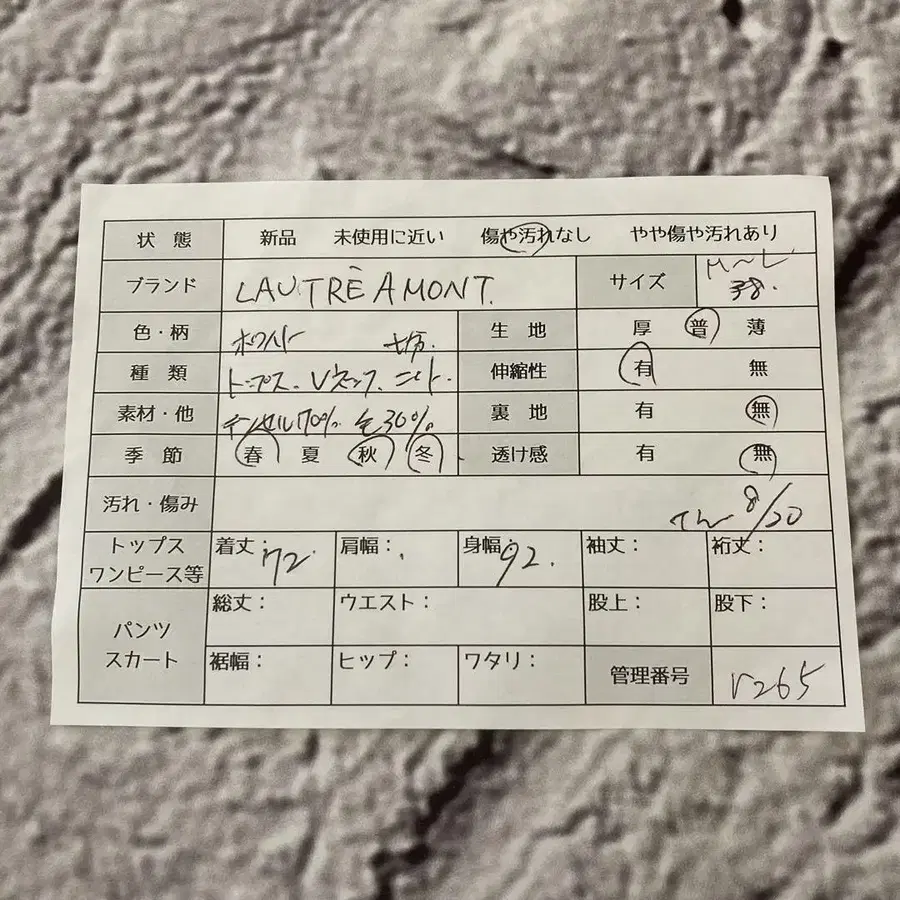 状態 新品 未使用に近い 傷や汚れなし やや傷や汚れあり
ブランド LAUTRÈAMONT. サイズ M〜L 38.
色・柄 ホワイト 生地 厚 普 薄
種類 トップス、Vネック、ニット. 伸縮性 有 無
素材・他 テンセル70% 毛30%. 裏地 有 無
季節 春 夏 秋 冬 透け感 有 無
汚れ・傷み 8/20
トップス ワンピース等 着丈: 72 肩幅: 身幅: 92. 袖丈: 裄丈:
パンツ スカート 総丈: ウエスト: 股上: 股下:
裾幅: ヒップ: ワタリ: 管理番号 r265